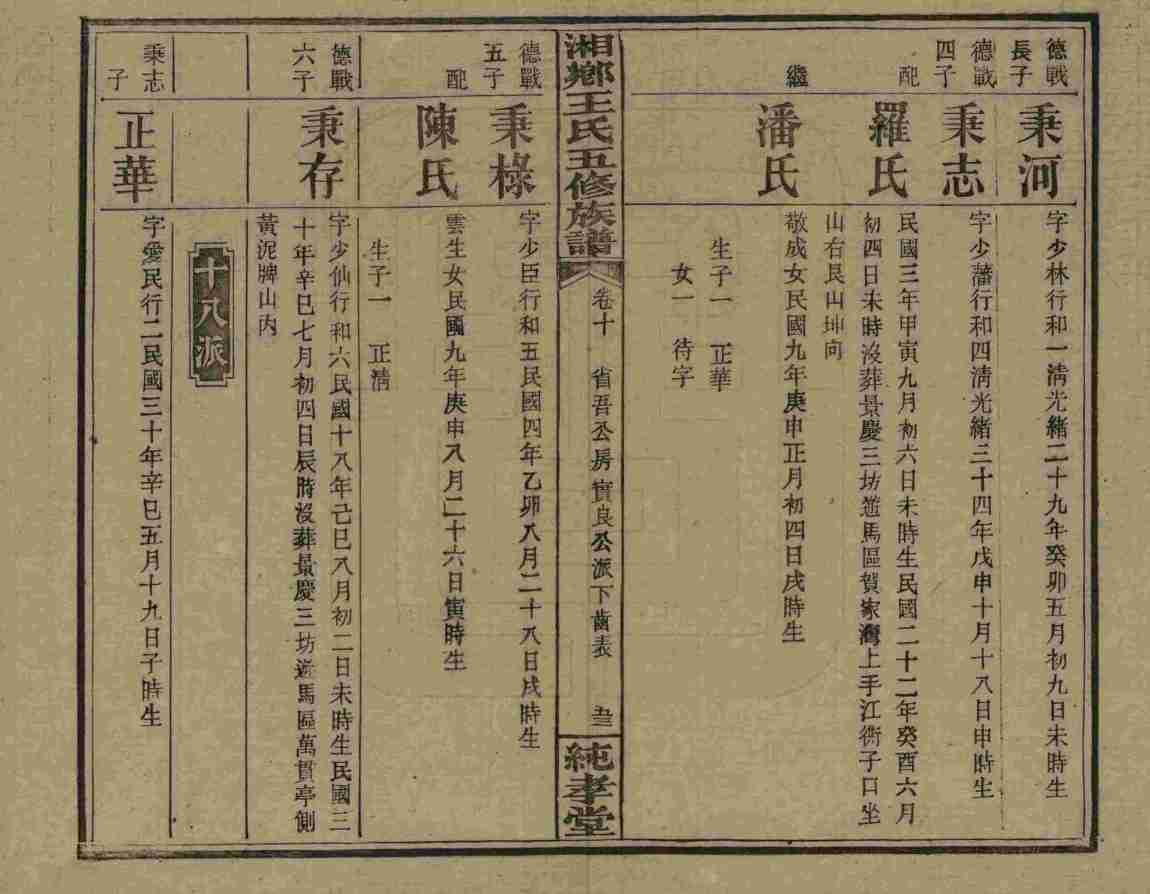 德戰
長子
秉河
字少林行和一淸光緖二十九年癸卯五月初九日未時生
德戰
四子
秉志
字少藩行和四淸光緖三十四年戊申十月十八日申時生
配
羅氏
民國三年甲寅九月初六日未時生民國二十二年癸酉六月
初四日未時沒葬景慶三坊遊馬區賀家灣上手江衝子口坐
山右艮山坤向
繼
潘氏
敬成女民國九年庚申正月初四日戌時生
生子一 正華
女一 待字
湘鄉王氏五修族譜
卷十 省吾公房實良公派下齒表 五三
純孝堂
德戰
五子
秉祿
字少臣行和五民國四年乙卯八月二十八日戌時生
配
陳氏
雲生女民國九年庚申八月二十六日寅時生
生子一 正淸
德戰
六子
秉存
字少仙行和六民國十八年己巳八月初二日未時生民國三
十年辛巳七月初四日辰時沒葬景慶三坊遊馬區萬貫亭側
黃泥牌山內
十八派
秉志
子
正華
字愛民行二民國三十年辛巳五月十九日子時生